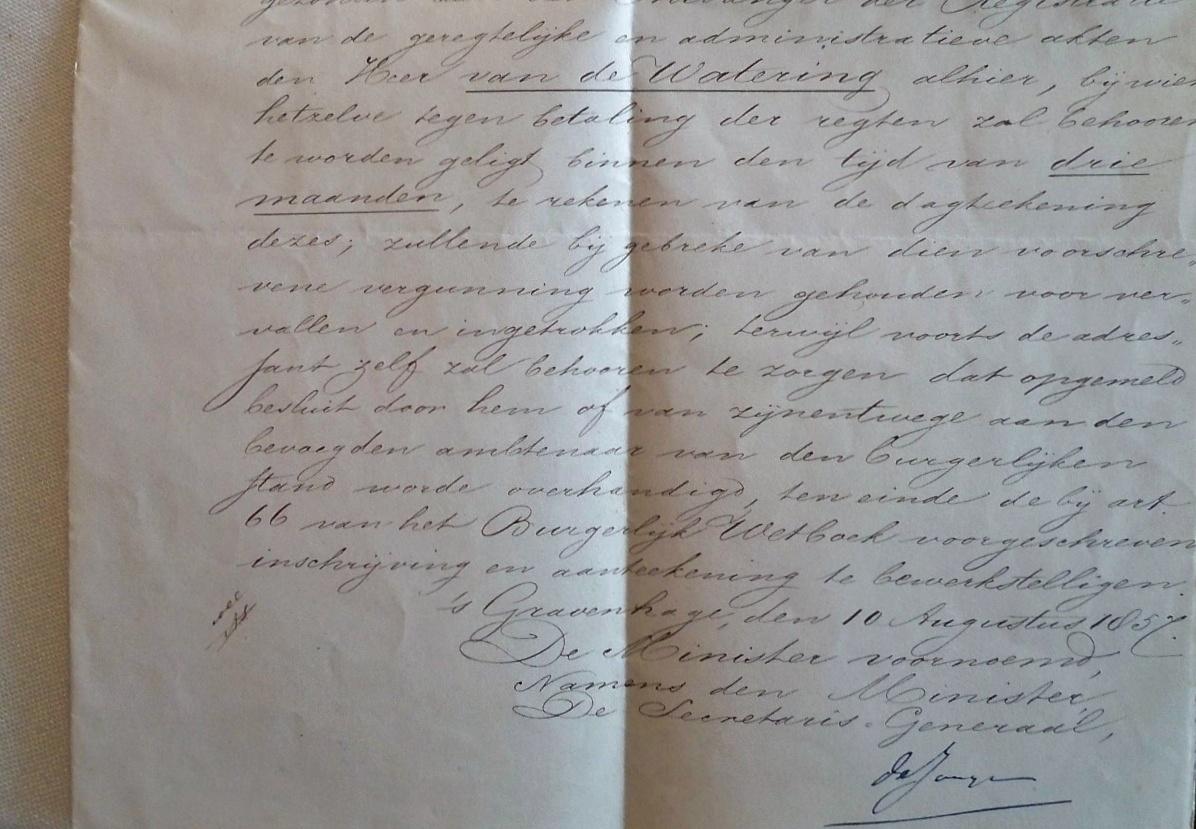 gezonden aan den Ontvanger der Registratie
van de geregtelijke en administratieve akten
den Heer van de Watering alhier, bij wien
hetzelve tegen betaling der regten zal behooren
te worden geligt binnen den tijd van drie
maanden, te rekenen van de dagteekening
dezes; zullende bij gebreke van dien voorschre„
vene vergunning worden gehouden voor ver„
vallen en ingetrokken; terwijl voorts de adres„
sant zelf zal behooren te zorgen dat opgemeld
besluit door hem of van zijnentwege aan den
bevoegden ambtenaar van den burgerlijken
stand worde overhandigd, ten einde de bij art.
66 van het Burgerlijk Wetboek voorgeschreven
inschrijving en aanteekening te bewerkstelligen.
's Gravenhage, den 10 Augustus 1857.
De Minister voornoemd,
Namens den Minister,
De Secretaris-Generaal,
de Jonge